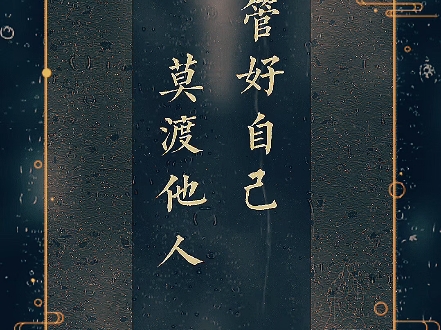 管好自己
莫渡他人